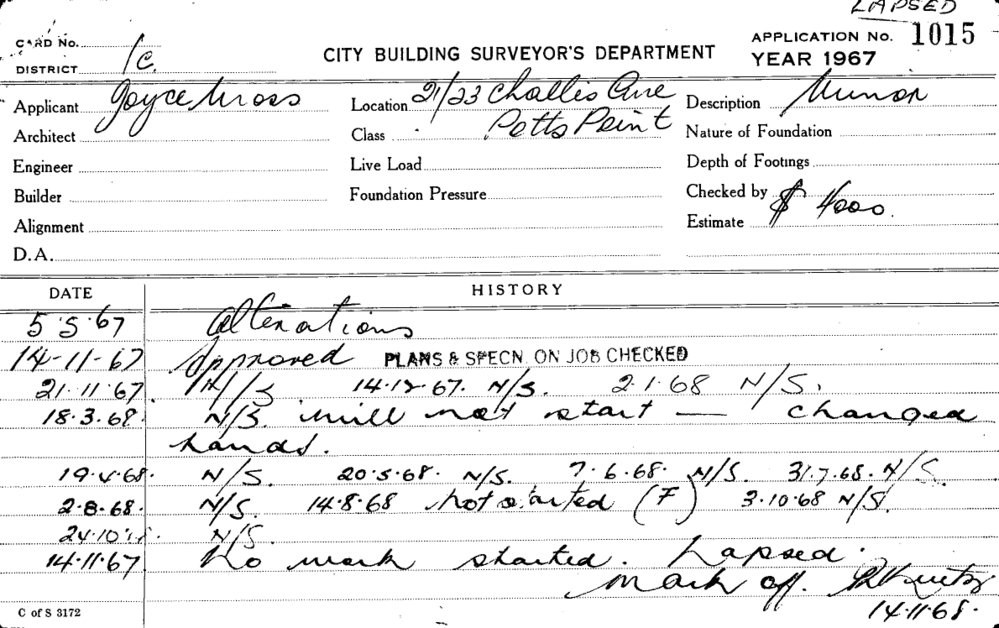 LAPSED
CARD No. 1C. CITY BUILDING SURVEYOR'S DEPARTMENT APPLICATION No. 1015
DISTRICT YEAR 1967
Applicant Joyce Location 21/23 Challis Ave Description Minor
Architect Class Potts Point Nature of Foundation
Engineer Live Load Depth of Footings
Builder Foundation Pressure Checked by
Alignment Estimate $ 4000.
D.A.
DATE HISTORY
5.5.67 Alterations
14-11-67 Approved PLANS & SPECN. ON JOB CHECKED
21.11.67. N/S 14.12.67. N/S. 2.1.68 N/S.
18.3.68. N/S. will not start — changed
hands.
19.4.68. N/S. 20.5.68. N/S. 7.6.68. N/S. 31.7.68. N/S.
2.8.68. N/S. 14.8.68 not started (F) 3.10.68 N/S.
24.10. N/S.
14.11.67 No work started. Lapsed.
Mark off.
C of S 3172 14.11.68.